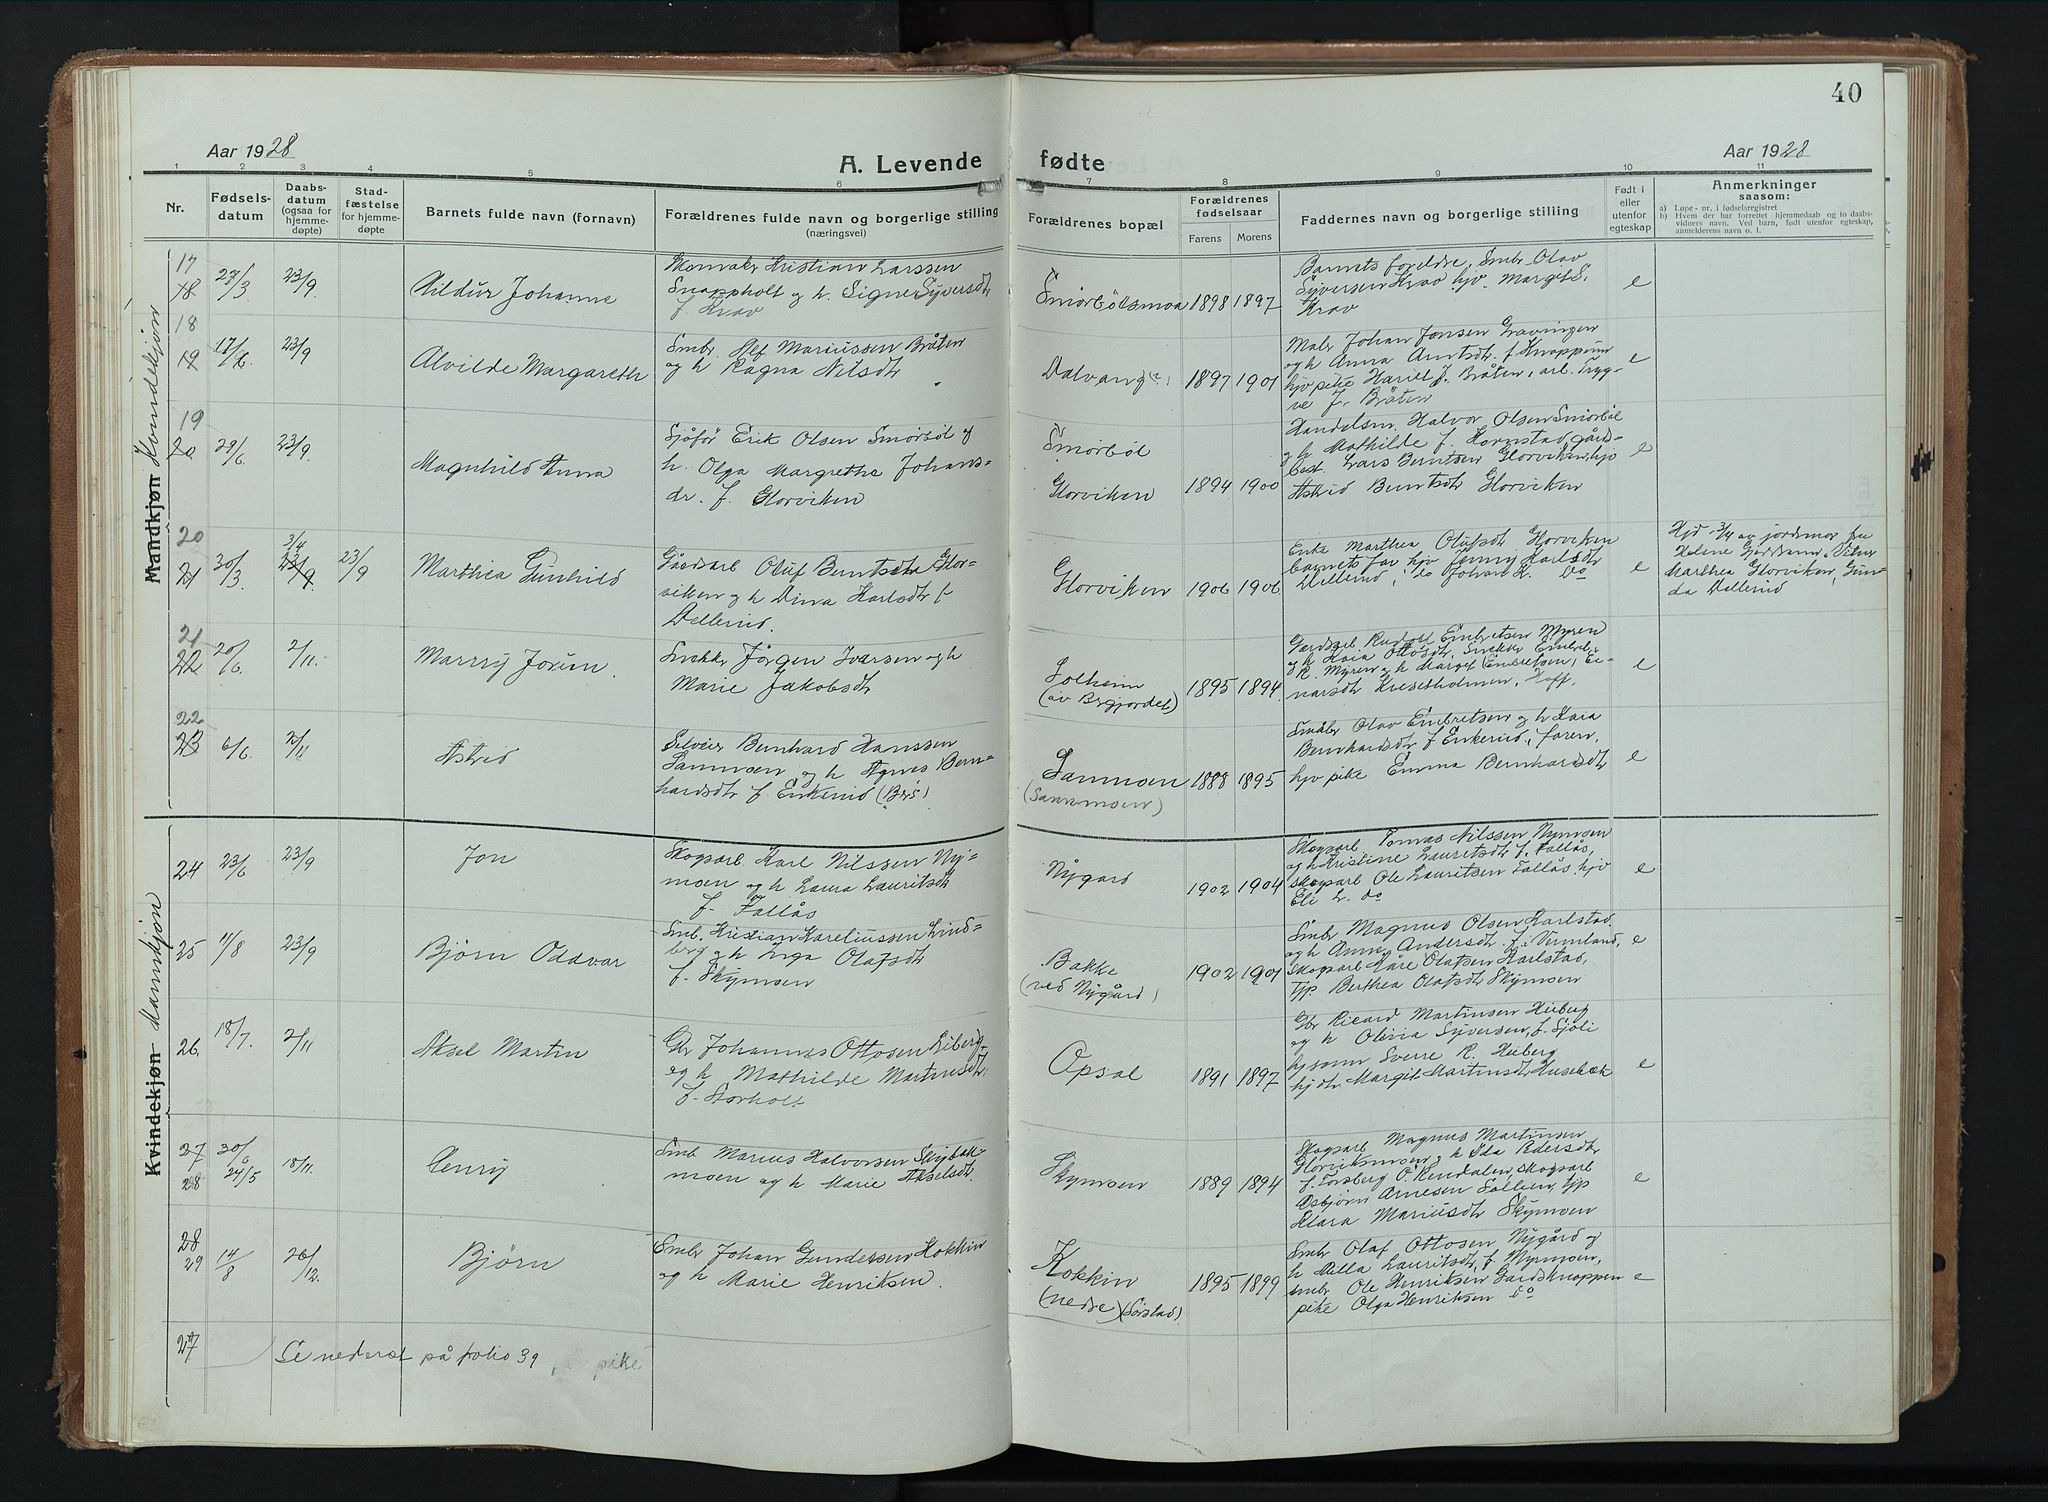 40
Aar 1928
A. Levende fødte
Aar 1928
1 2 3 4 5 6 7 8 9 10 11
Nr.
Fødsels-
datum
Daabs-
datum
(ogsaa for
hjemme-
døpte)
Stad-
fæstelse
for hjemme-
døpte
Barnets fulde navn (fornavn)
Forældrenes fulde navn og borgerlige stilling
(næringsvei)
Forældrenes bopæl
Forældrenes
fødselsaar
Farens Morens
Faddernes navn og borgerlige stilling
Født i
eller
utenfor
egteskap
Anmerkninger
saasom:
a) Løpe-nr. i fødselsregistret
b) Hvem der har forrettet hjemmedaab og to daabs-
vidners navn. Ved barn, født utenfor egteskap,
anmelderens navn o. l.
Mandkjøn Kvindekjøn
17
18 27/3 23/9
Johanne
Kristian Larssen
Snappholt og h. Signe Syversdt
f. Krav
Smörbölsmoa 1898 1897
Barnets foreldre, Smbr Olav
Syversen Krav hjv. Margit S.
Krav
e
18
19 17/6 23/9
Alvilde Margareth
Smbr. Alf Mariussen Bråten
og h Ragna Nilsdt
Dalvang 1897 1901
Maler Johan Jonsen Gravingen
og h Anna Arntsdt. f Knappum
hjv pike Hariet J. Bråten, arb. Tryg-
ve J. Bråten
e
19
20 29/6 23/9.
Magnhild Anna
Sjåfør Erik Olsen Smörböl og
h. Olga Margrethe Johans-
dr. f. Glorviken
Smörböl
Glorviken 1894 1900
Handelsm. Halvor Olsen Smörböl
og h Mathilde f. Kornstad, gård-
best. Lars Berntsen Glorviken, hjv
Astrid Berntsdt Glorviken
e
20
21 30/3 3/4 23/9 23/9
Marthea Gunhild
Gårdarb Oluf Berntsen Glor-
viken og h Dina Karlsdt f
Dellerud.
Glorviken 1906 1906
Enke Marthea Olufsdt Glorviken
barnets far hjv Jenny Karlsdt
Dellerud, do Johan K. Do
e
Hjd 3/4 av jordmor fru
Helene Vitner
Marthea Glorviken, Gun-
da Dellerud
21
22 20/6 2/11.
Marry Jorun.
Snekker Jörgen Iversen og h
Marie Jakobsdt
Solheim
(av Bergjordet) 1895 1894
Gårdsarb Rudolf Embretsen Myren
og h Kaia Ottosdt, Snekker Embret
R. Myren og h Margit (Embretsen) Ei-
narsdt Kvesetholmen, Hoff.
e
22
23 6/6. 2/11
Astrid
Bernhard Hanssen
Sanmoen og h Agnes Bern-
hardsdt f. Enkerud
Sanmoen
(Sannmoen) 1888 1895
Smbr Olav Embretsen og h Kara
Bernhardsdt f Enkerud, faren,
hjv pike Emma Bernhardsdt
e
Kvindekjøn Mannkjøn
24 23/6 23/9
Jon
Skogsarb Karl Nilssen Ny-
moen og h Laura Lauritsdt
f. Fallås
Nygard 1902 1904
Skogsarb Tomas Nilssen Nymoen
og h Kristine Lauritsdt f. Fallås,
skogsarb Ole Lauritsen Fallås hjv
Eli L. do
e
25 11/8 23/9
Björn Oddvar
Smb. Kristian Kareliussen Lind-
berg og h Inga Olafsdt
f. Skymoen
Bakke
(ved Nygård) 1902 1901
Smbr Magnus Olsen Karlstad
og h Anne Andersdt f. Vermland,
skogsarb Kåre Olafsen Karlstad,
tjp. Berthea Olafsdt Skymoen
e
26. 18/7. 2/11
Aksel Martin
Gbr Johannes Ottosen Liberg
og h Mathilde Martinsdt
f. Storholt
Opsal 1891 1897
Gbr Ricard Martinsen Heiberg
og h Olivia Syversen, f. Sjöli
hj.sønn Sverre R. Heiberg
hjdtr Margit Martinsdt Husebæk
e
27 30/6
28 24/5 18/11.
Henry
Smb Marius Halvorsen Skybak-
moen og h Marie Akselsdt.
Skymoen 1889 1894
Skogsarb Magnus Martinsen
Glorviksmoen og h Ida Pedersdt
f. Forsberg O. Rendalen, skogsarb
Asbjörn Arnesen Solheim, tjp
Klara Mariusdt Skymoen
e
28
29 14/8 26/12.
Björn
Smbr Johan Gundersen Kokkin
og h Marie Henriksen.
Kokkin
(nedre) (Sörstad) 1895 1899
Smbr Olaf Ottosen Nygård og
h Milla Lauritsdt, f Nymoen,
smbr Ole Henriksen Gardsknappen
pike Olga Henriksen do
e
27
Se nederst på folio 39, pike